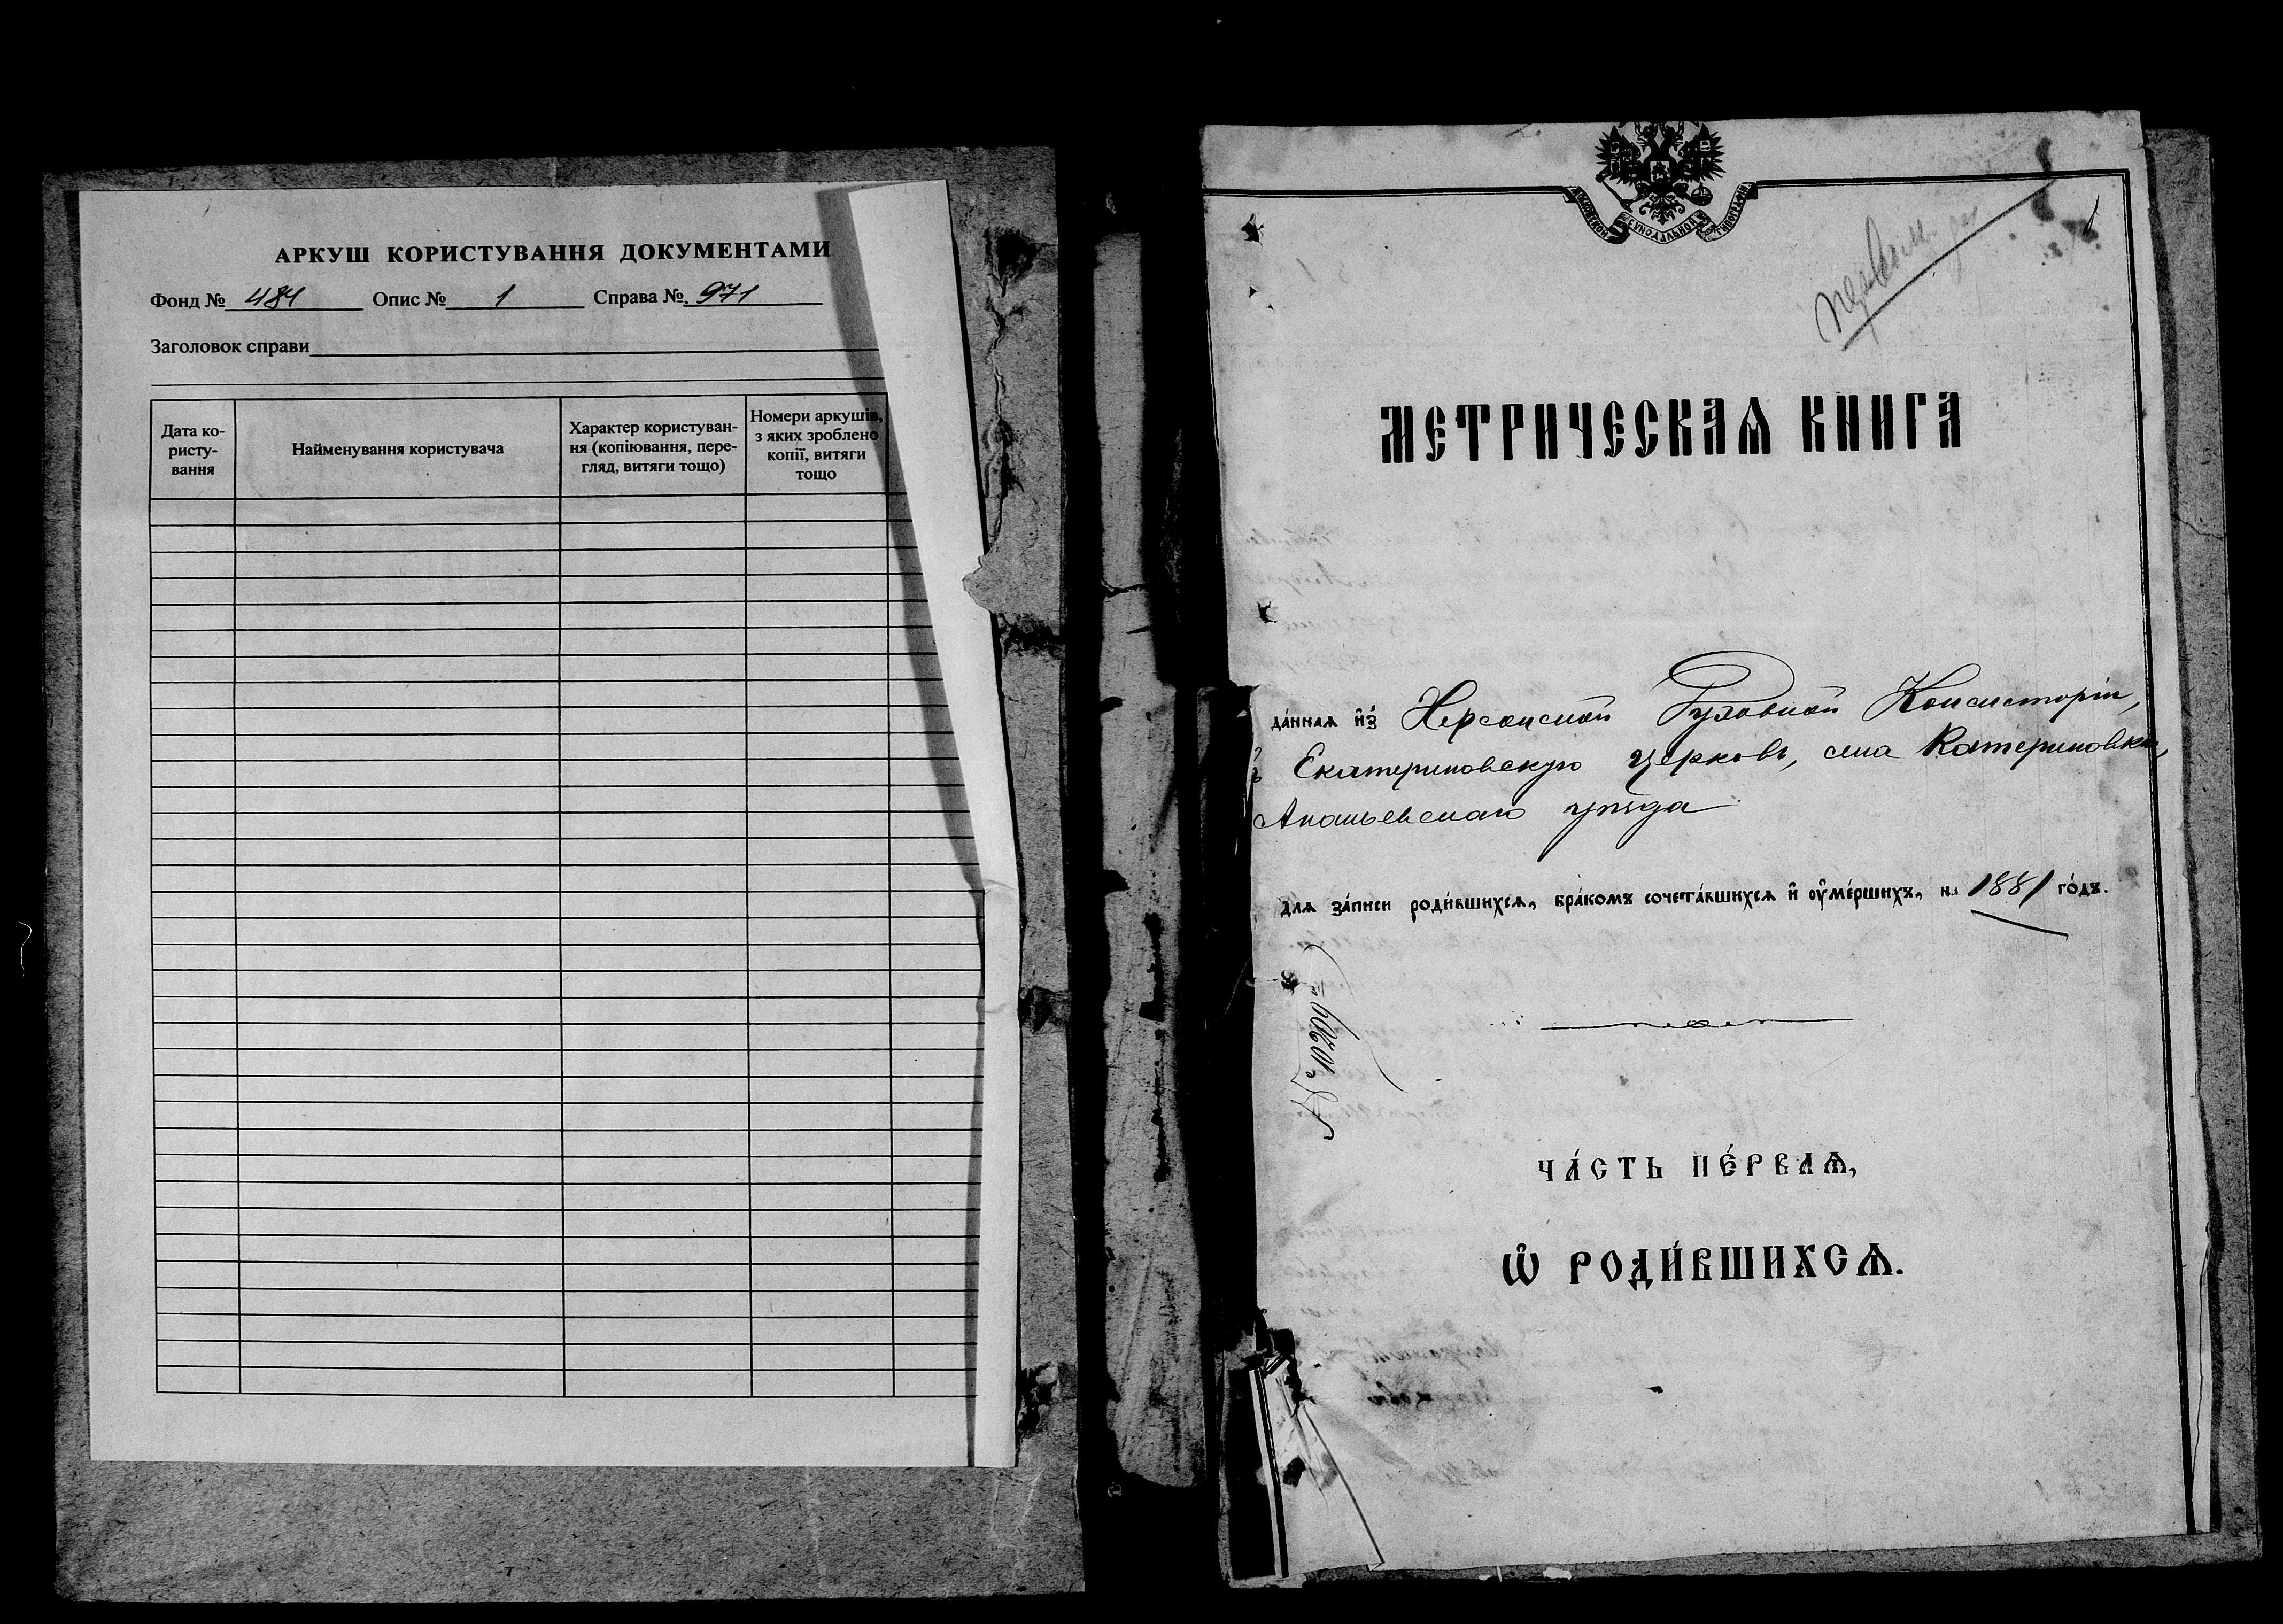 АРКУШ КОРИСТУВАННЯ ДОКУМЕНТАМИ
Фонд № 484 Опис № 1 Справа № 971
Заголовок справи
Дата ко-
ристу-
вання
Найменування користувача
Характер користуван-
ня (копіювання, пере-
гляд, витяги тощо)
Номери аркушів,
з яких зроблено
копії, витяги
тощо
МОСКОВСКОЙ СѴНОДАЛЬНОЙ ТИПОГРАФІИ
1
МЕТРИЧЕСКАѦ КНИГА
да́ннаѧ и҆з̾ Херсонской Духовной Консисторіи,
въ Екатериновскую церковь, села Катериновки,
Ананьевскаго уѣзда
для за́писи роди́вшихсѧ, бра́комъ сочета́вшихсѧ и҆ ᲂу҆ме́ршихъ, на 1881 го́дъ.
ЧА́СТЬ ПЕ́РВАѦ,
Ѽ РОДИ́ВШИХСѦ.